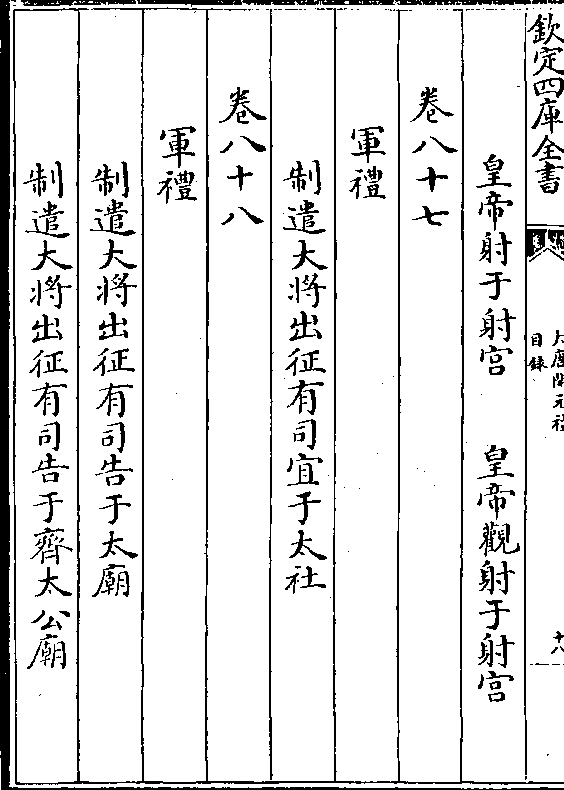 欽定四庫全書
大唐開元禮
目錄
十八
皇帝射于射宮 皇帝觀射于射宮
卷八十七
軍禮
制遣大將出征有司宜于太社
卷八十八
軍禮
制遣大將出征有司告于太廟
制遣大將出征有司告于齊太公廟